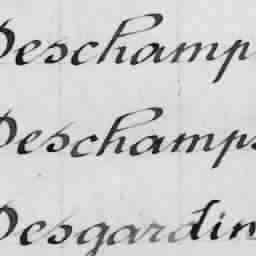 Deschamp
Deschamps
Desgardin